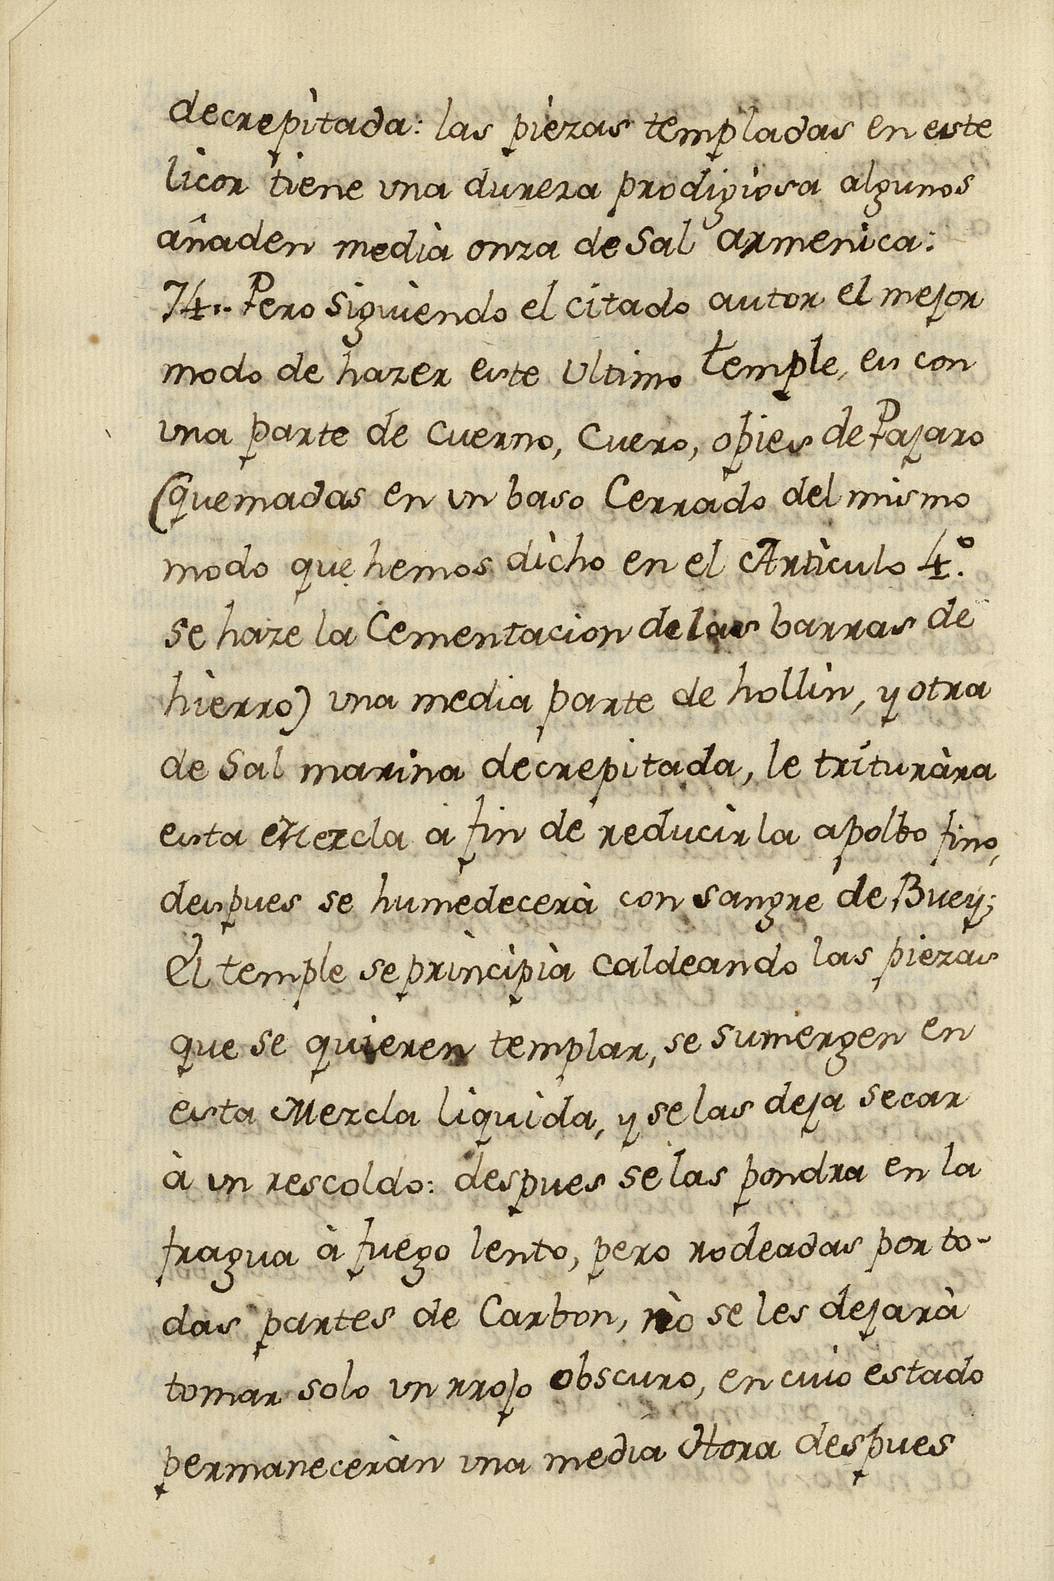 decrepìtada: las pìezas templadas en este
licor tiene una dureza prodigìosa algunos
añaden medìa onza de Sal armenìca:
74.. Pero Siguiendo el citado autor el mejor
modo de hazer este Ultimo temple, es con
una parte de Cuerno, Cuero, opies de Pajaro
(quemadas en un baso Cerrado del mismo
modo que hemos dìcho en el Artìculo 4.º
se haze la Cementacion de las barras de
hìerro) una media parte de hollìn, y otra
de Sal marina decrepitada, le trituràra
esta Mezcla à fin de reducìrla apolbo fino,
despues se humedecerà con sangre de Buey;
El temple se prìncìpìa Caldeando las piezas
que se quieren templar, se sumergen en
esta Mezcla lìquìda, y selas deja secar
à un rescoldo: despues selas pondra en la
fragua à fuego lento, pero rodeadas por to-
das partes de Carbon, nò se les dejarà
tomar solo un rrojo obscuro, en cuio estado
permaneceràn una media Hora despues